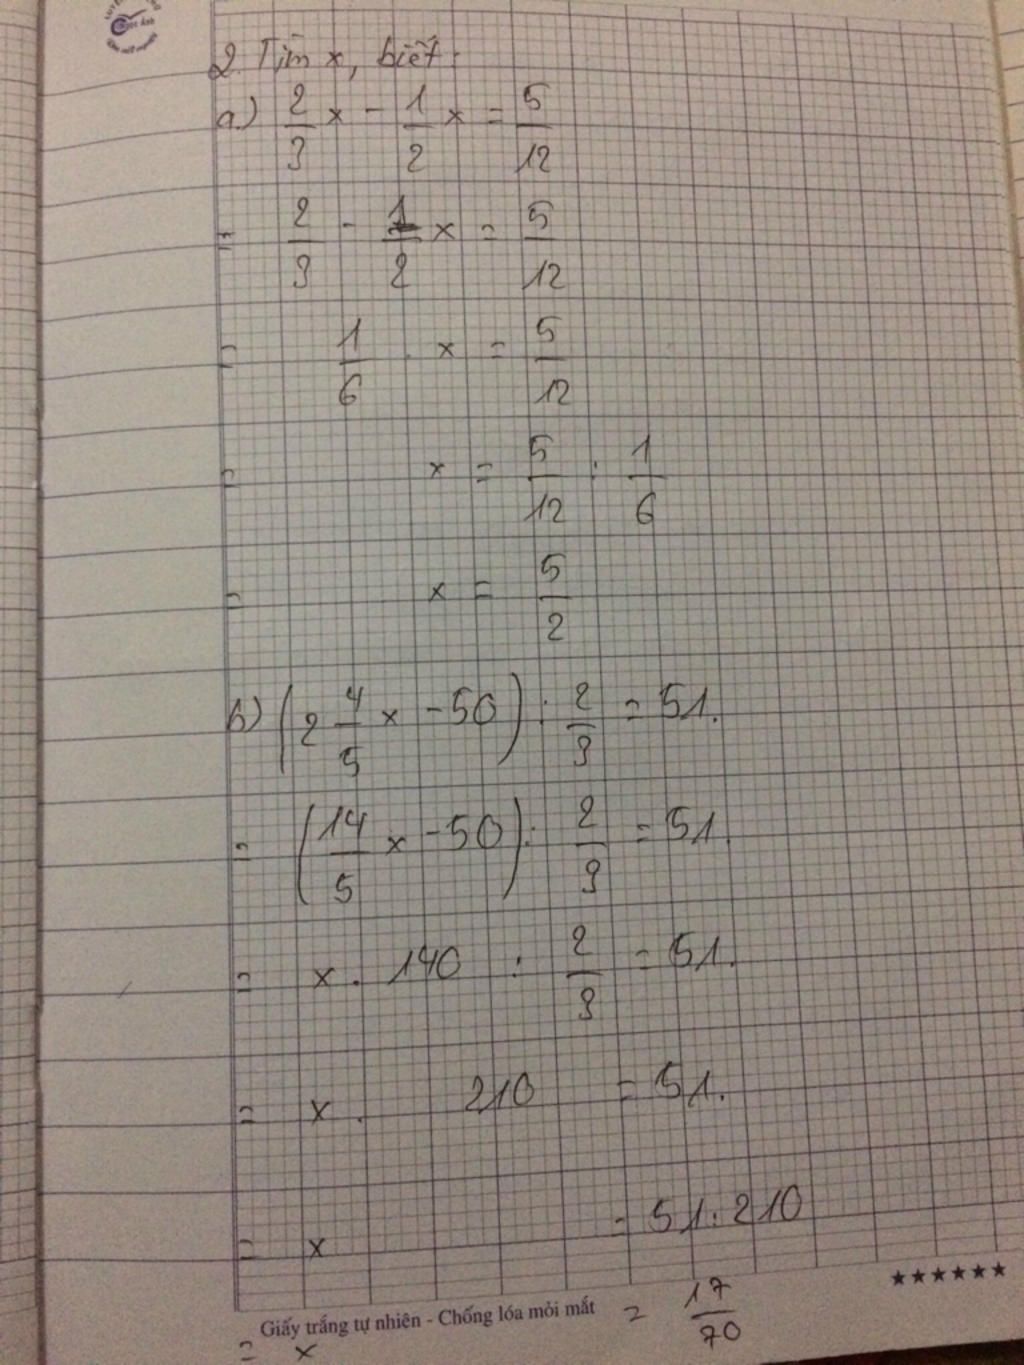 2. Tìm x, biết:
a) 2/3 x - 1/2 x = 5/12
= 2/3 - 1/2 x = 5/12
= 1/6 . x = 5/12
= x = 5/12 : 1/6
= x = 5/2
b) (2 4/5 x - 50) : 2/3 = 51.
= (14/5 x - 50) : 2/3 = 51.
= x . 140 : 2/3 = 51.
= x . 210 = 51.
= x = 51 : 210
= x = 17/70
Giấy trắng tự nhiên - Chống lóa mỏi mắt
★★★★★★